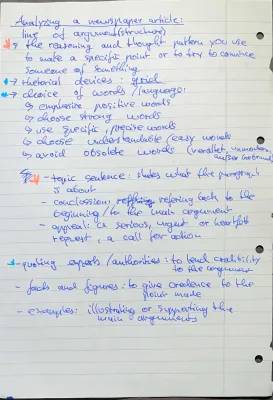 Analyzing a newspaper article:
line of argument (structure)
the reasoning and thought pattern you use
to make a specific point or to try to convince
someone of something
rhetorial devices: grid
choice of words/language:
↳ emphasize positive words
↳ choose strong words
↳ use specific, precise words
↳ choose understandable/easy words
↳ avoid obsolete words (veraltet,
- topic sentence: states what the paragraph
is about
- conclusion: refering back to the
beginning/to the main argument
- appeal: a serious, urgent or heartfelt
request, a call for action
- quoting experts/authorities: to lend credibility
to the argument
- facts and figures: to give credence to the
point made
- examples: illustrating or supporting the
main arguments